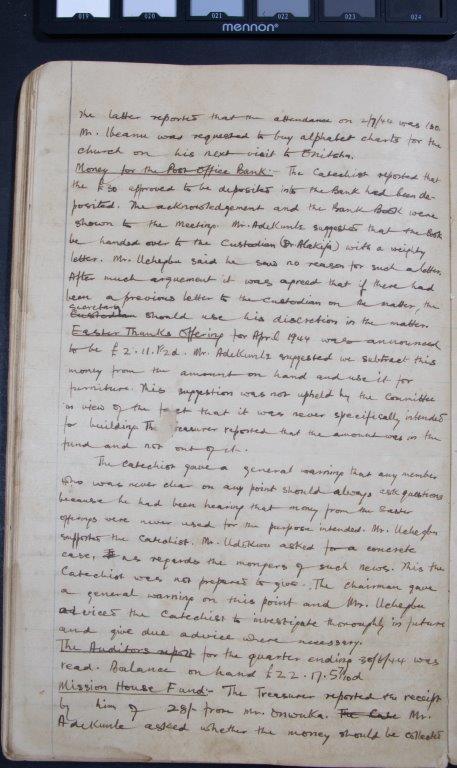 019 020 021 022 023 024
mennon®
the latter reported that the attendance on 2/7/44 was 130.
Mr. Ibeanu was requested to buy alphabet charts for the
church on his next visit to Onitsha.
Money for the Post Office Bank:- The Catechist reported that
the £30 approved to be deposited into the Bank had been de-
posited. The acknowledgement and the Bank Book were
shown to the meeting. Mr. Adekunle suggested that the Book
be handed over to the Custodian (Dr Alakija) with a weighty
letter. Mr. Uchegbu said he saw no reason for such a letter.
After much arguement it was agreed that if there had
been a previous letter to the Custodian on the matter, the
secretary
Custodian should use his discretion in the matter.
Easter Thanks Offering for April 1944 was announced
to be £2.11.1½d. Mr. Adekunle suggested we subtract this
money from the amount on hand and use it for
furniture. This suggestion was not upheld by the Committee
in view of the fact that it was never specifically intended
for building. The Treasurer reported that the amount was in the
fund and not out of it.
The Catechist gave a general warning that any member
who was never clear on any point should always ask questions
because he had been hearing that money from the Easter
offerings were never used for the purpose intended. Mr. Uchegbu
supports the Catechist. Mr. Udokwu asked for a concrete
case, as regards the mongers of such news. This the
Catechist was not prepared to give. The chairman gave
a general warning on this point and Mr. Uchegbu
advices the Catechist to investigate thoroughly in future
and give due advice where necessary.
The Auditors report for the quarter ending 30/6/44 was
read. Balance on hand £22.17.5½d
Mission House Fund:- The Treasurer reported the receipt
by him of 28/- from Mr. Onwuka. The Case Mr.
Adekunle asked whether the money should be collected